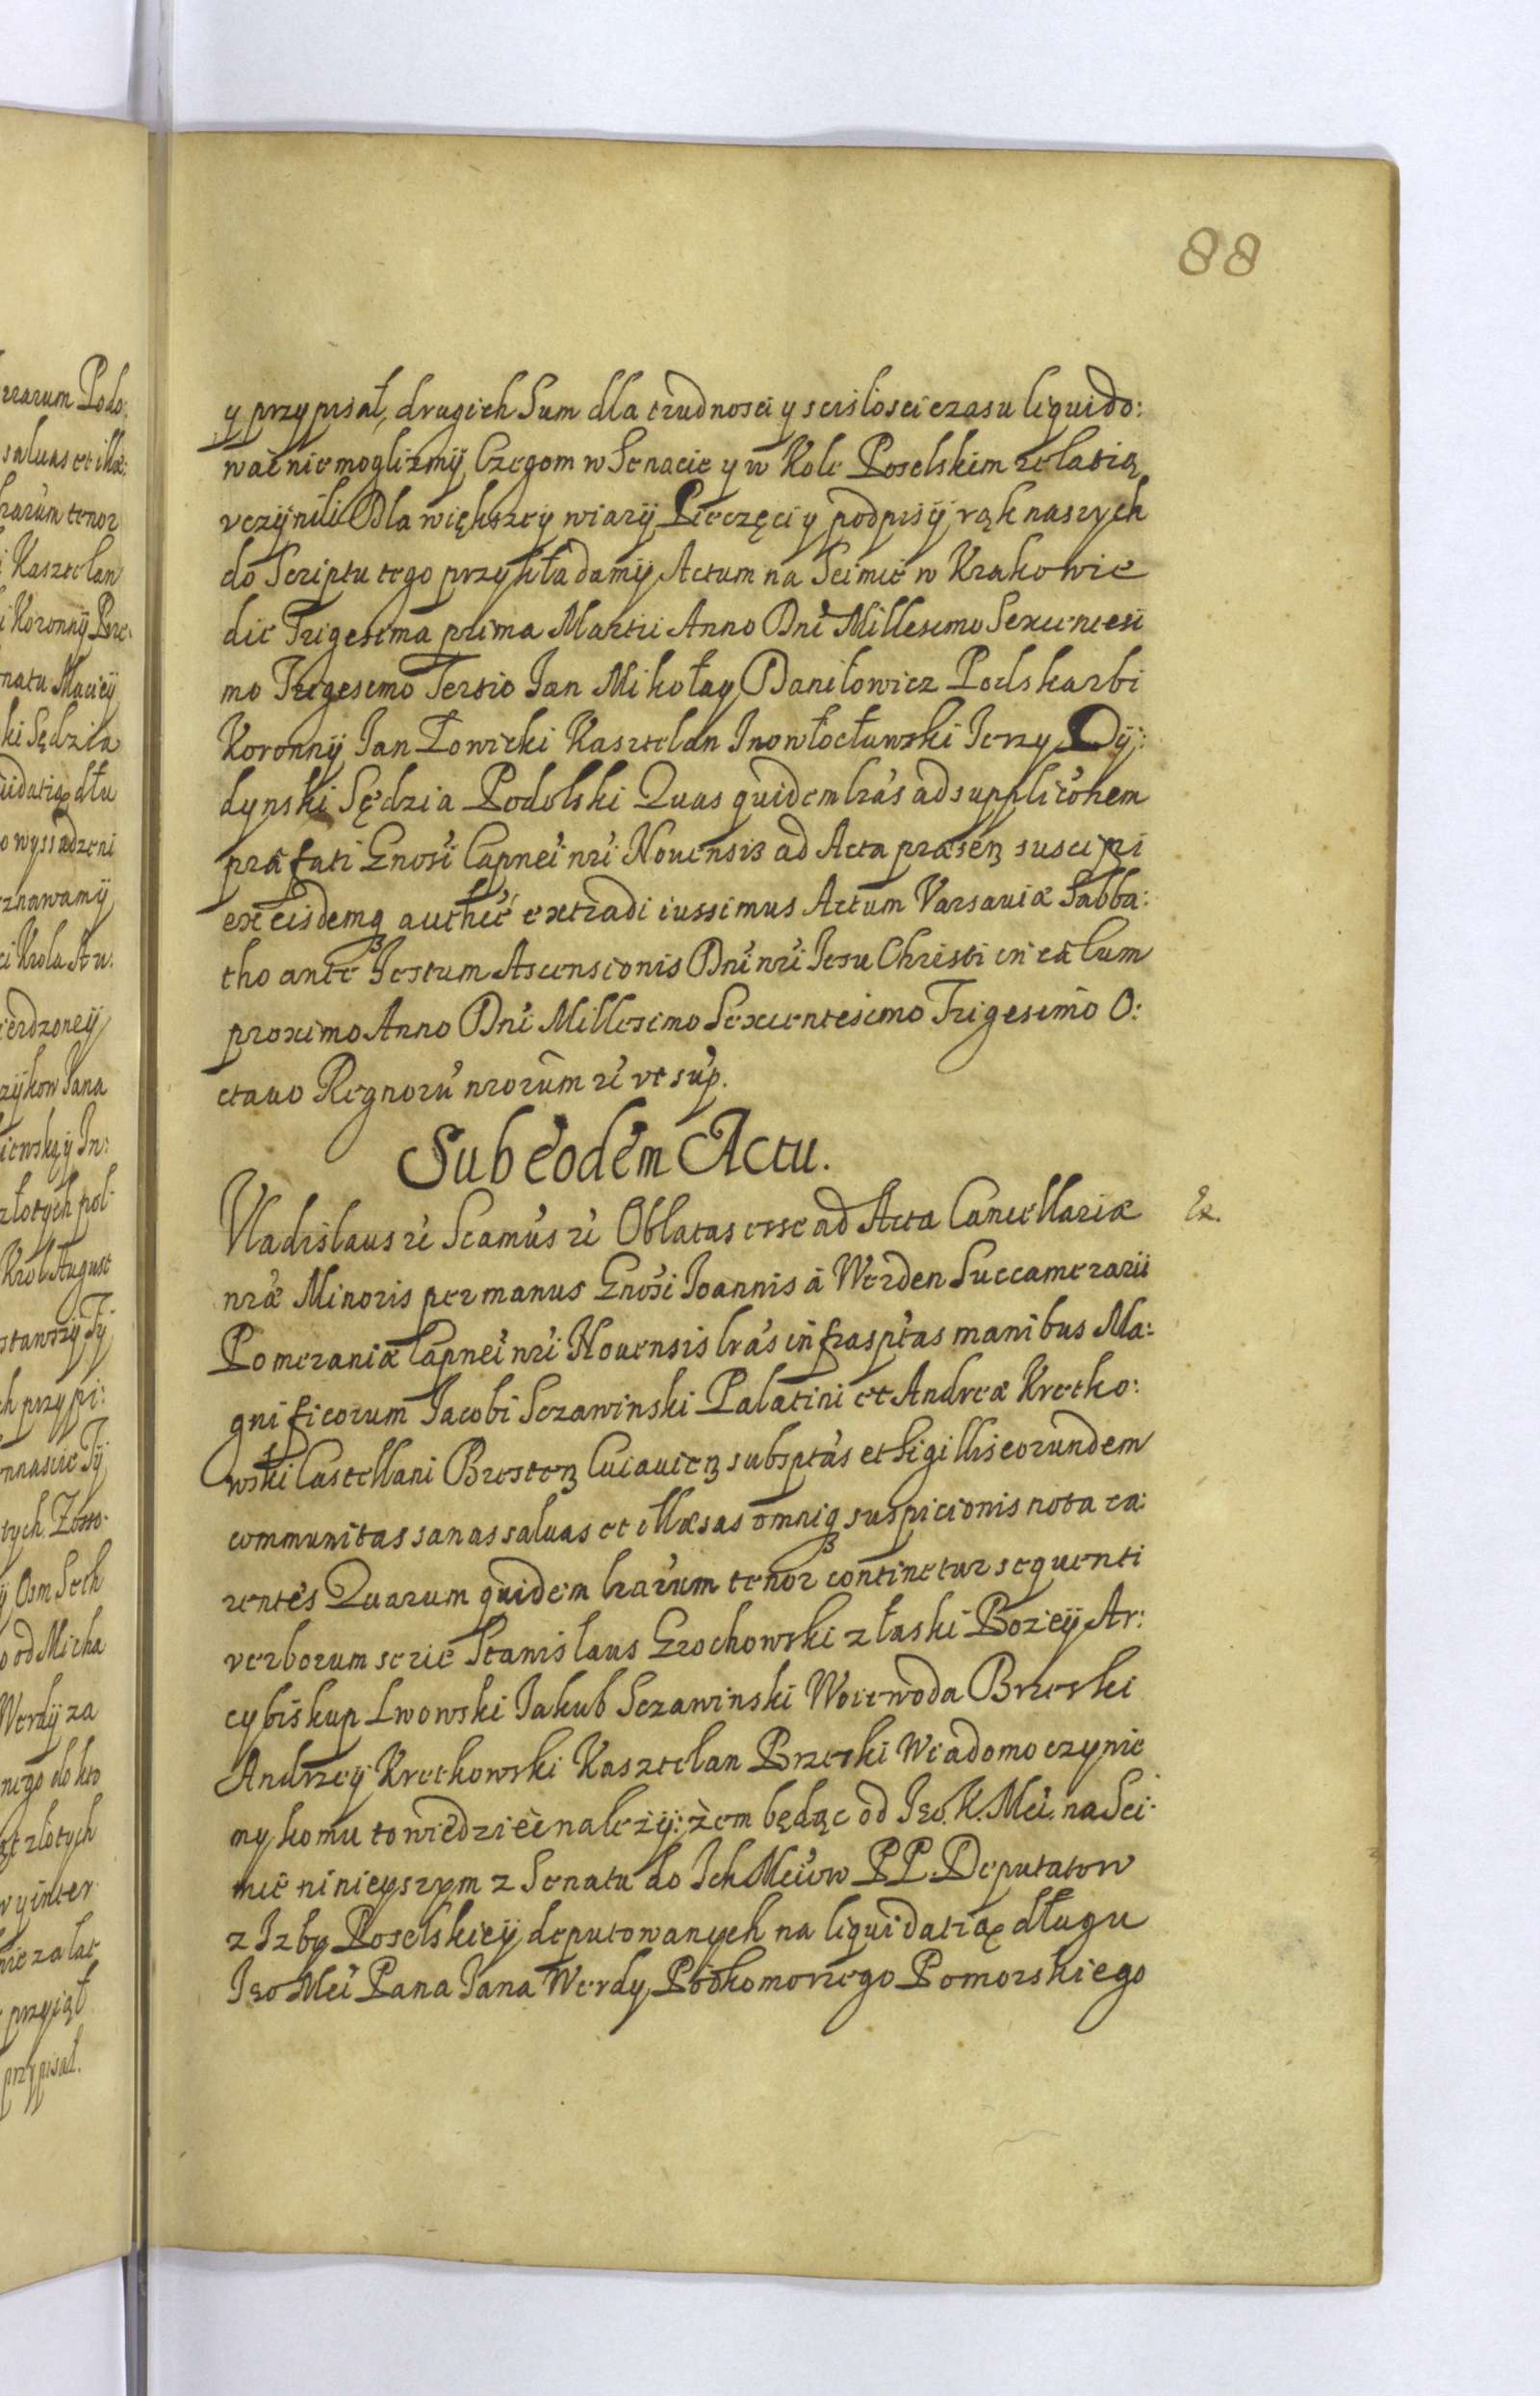 88
y przypisał, drugich Sum dla trudnosci y scisłosci czasu liquido:
wać nie moglizmÿ, Czegom w Senacie y w Kole Poselskim relatią
vczÿnili Dla większeÿ wiarÿ Pieczęci y podpisÿ rąk naszych
do Scriptu tego przykładamÿ Actum na Seimie w Krakowie
die Trigesima prima Martii Anno Dni Millesimo Sexcentesi
mo Trigesimo Tertio Jan Mikołay Daniłowicz Podskarbi
Koronnÿ Jan Łowicki Kasztelan Inowłocławski Jerzy Dÿ:
dynski Sędzia Podolski Quas quidem lras ad supplicōnem
præfati Gnosi Capnei nri Nouensis ad Acta præsen suscipi
ex eisdemq authē extradi iussimus Actum Varsauiæ Sabba:
tho ante Festum Ascensionis Dni nri Jesu Christi in cælum
proximo Anno Dni Millesimo Sexcentesimo Trigesimo O:
ctauo Regnorū nrorum rē vt sup.
Sub eodem Actu.
Vladislaus rē Scamus rē Oblatas esse ad Acta Cancellariæ
Ex.
nræ Minoris per manus Gnosi Joannis à Werden Succamerarii
Pomeraniæ Capnei nri Nouensis lras infrasptas manibus Ma:
gnificorum Jacobi Sczawinski Palatini et Andreæ Kretko:
wski Castellani Bresten Cuiauien subsptas et Sigillis eorundem
communitas sanas saluas et illæsas omniq suspicionis nota ca:
rentes Quarum quidem lrarum tenor continetur sequenti
verborum serie Stanislaus Grochowski z łaski Bozeÿ Ar:
cybiskup Lwowski Jakub Sczawinski Woiewoda Brzeski
Andrzey Kretkowski Kasztelan Brzeski Wiadomo czynie
my komu to wiedzieć nalezÿ: żem będąc od Jeo. K. Mci. na Sei:
mie ninieyszym z Senatu do Ich Mciów PP. Deputatow
z Izby Poselskieÿ deputowanych na liquidatią długu
Jeo Mci Pana Jana Werdy Podkomorzego Pomorskiego